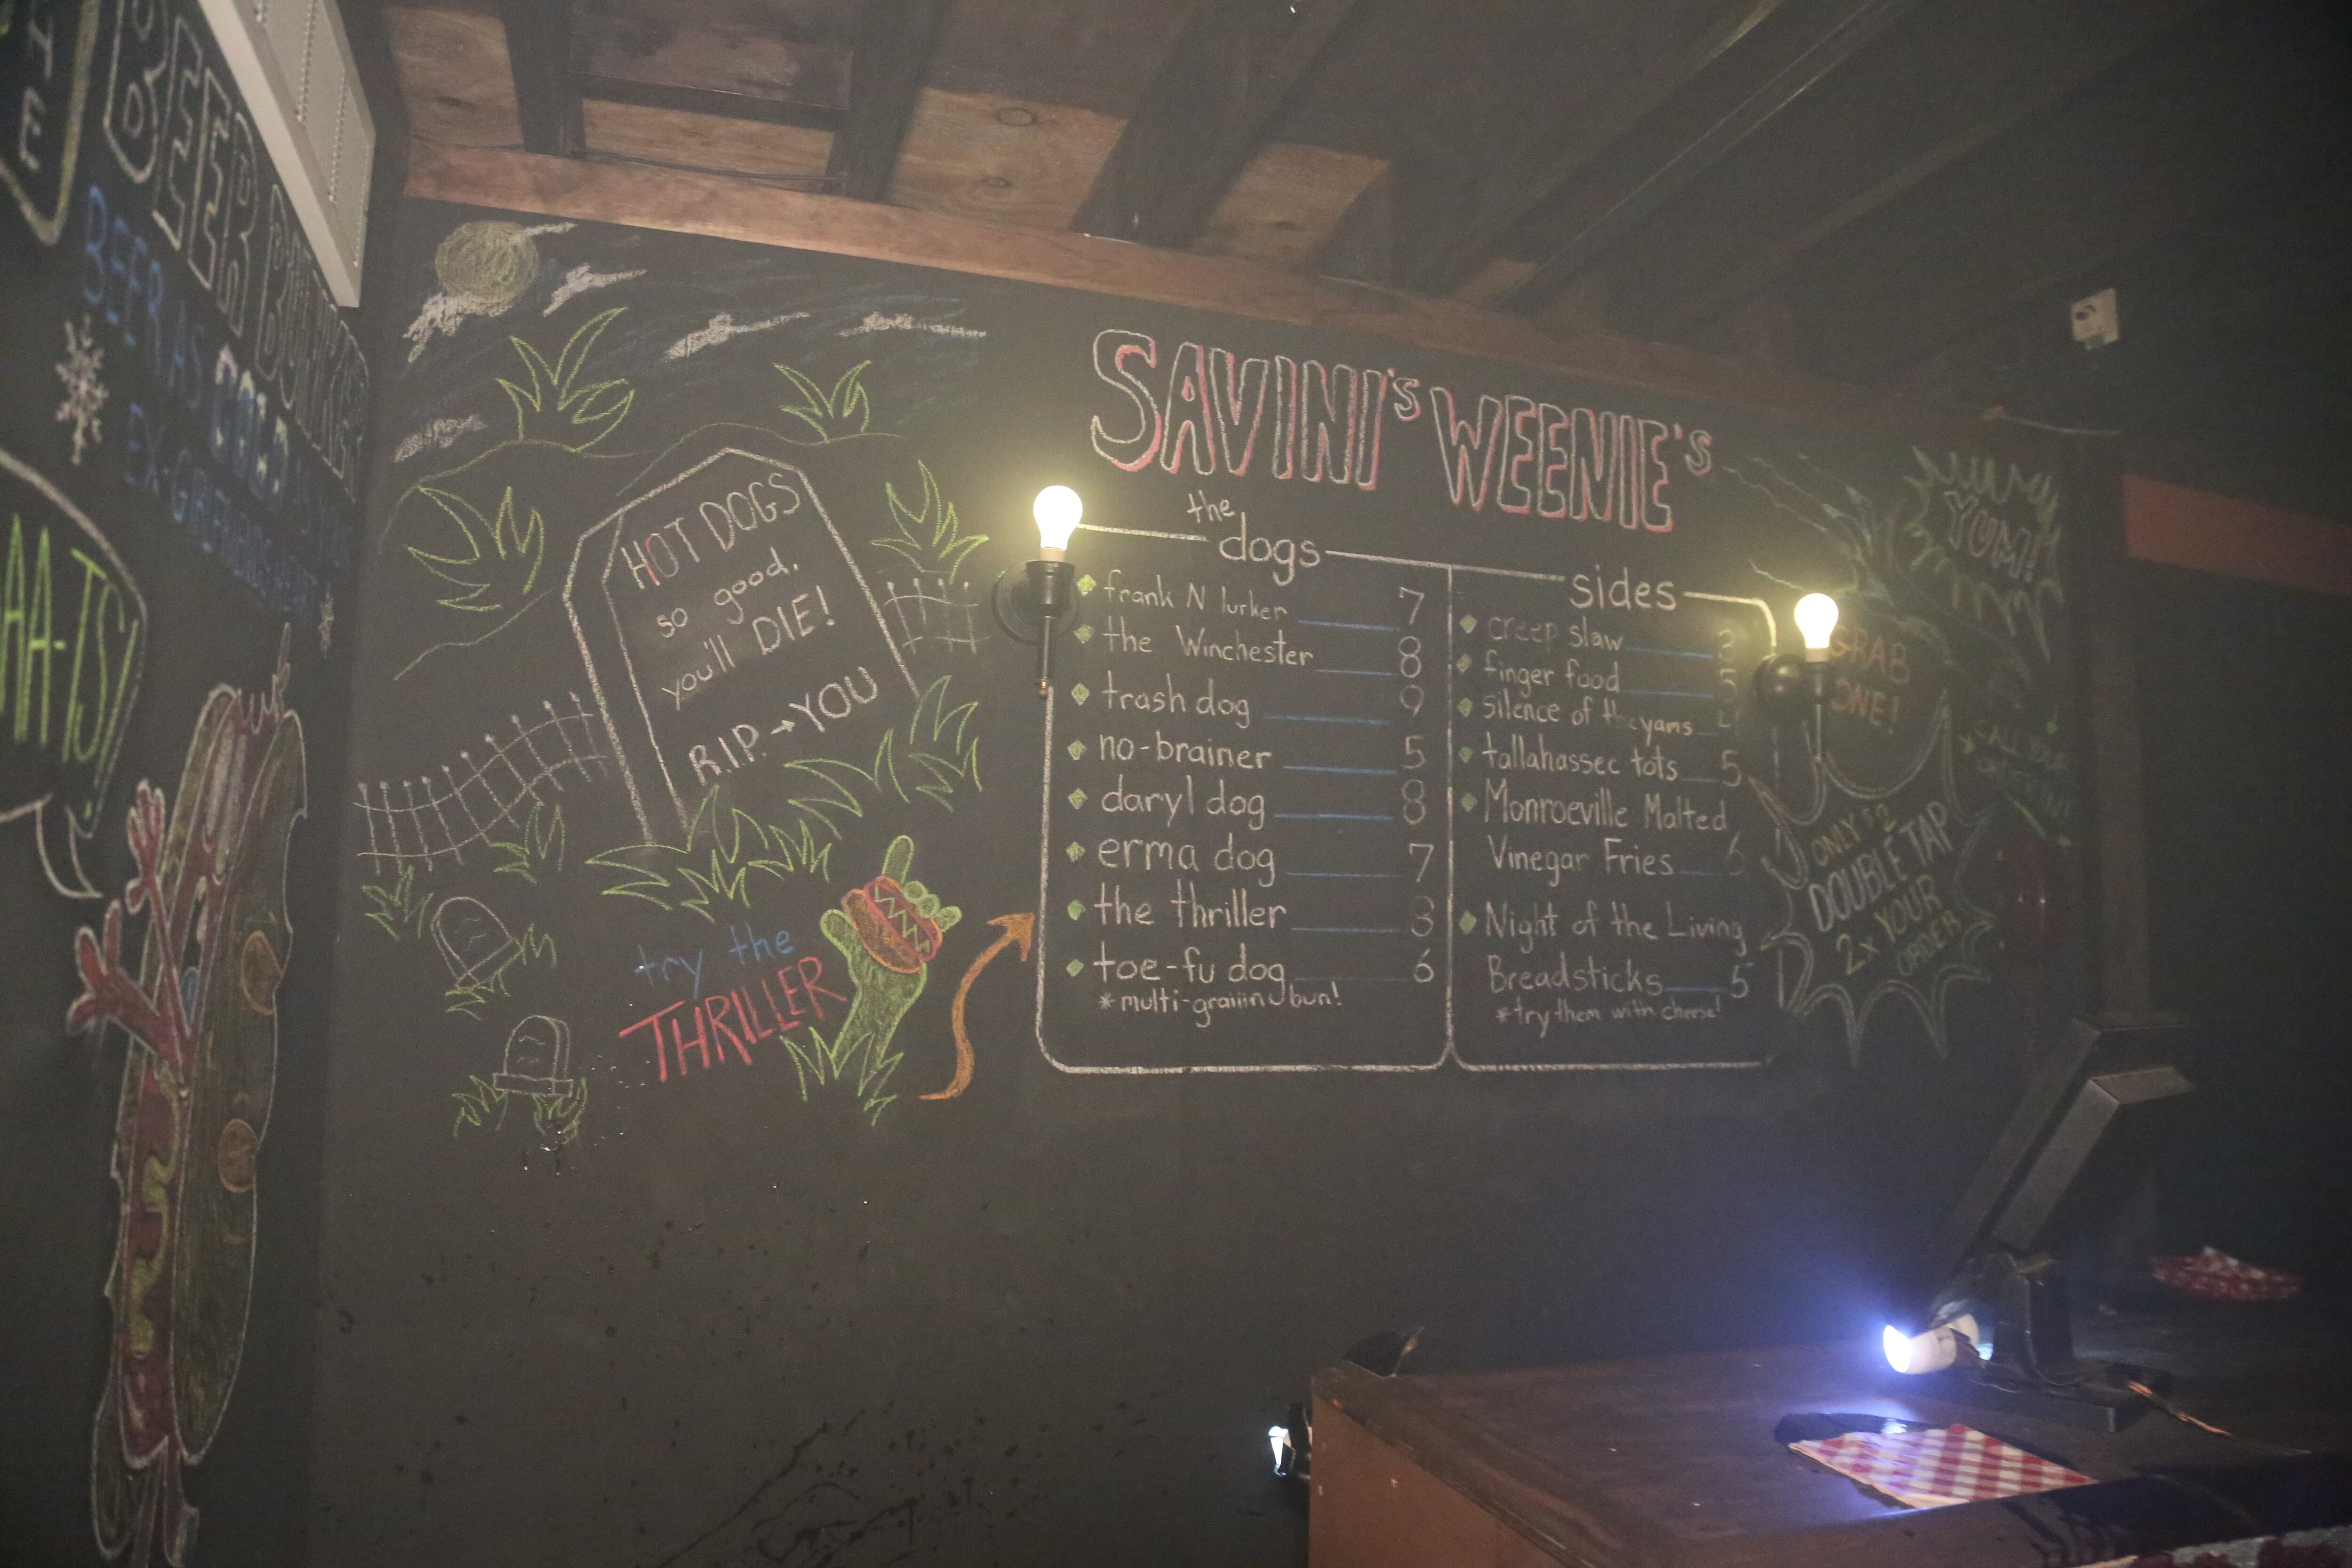 BEER BUNKER
BEER AS COLD AS YOUR
HOT DOGS
so good,
you'll DIE!
R.I.P. → YOU
try the
THRILLER
SAVINI'S WEENIE'S
the
dogs
frank N lurker 7
the Winchester 8
trash dog 9
no-brainer 5
daryl dog 8
erma dog 7
the thriller 8
toe-fu dog 6
*multi-graiiin bun!
sides
creep slaw 3
finger food
silence of the yams
tallahassee tots 5
Monroeville Malted
Vinegar Fries 6
Night of the Living
Breadsticks 5
*try them with cheese!
YUM!
GRAB
ONE!
ONLY $2
DOUBLE TAP
2x YOUR
ORDER